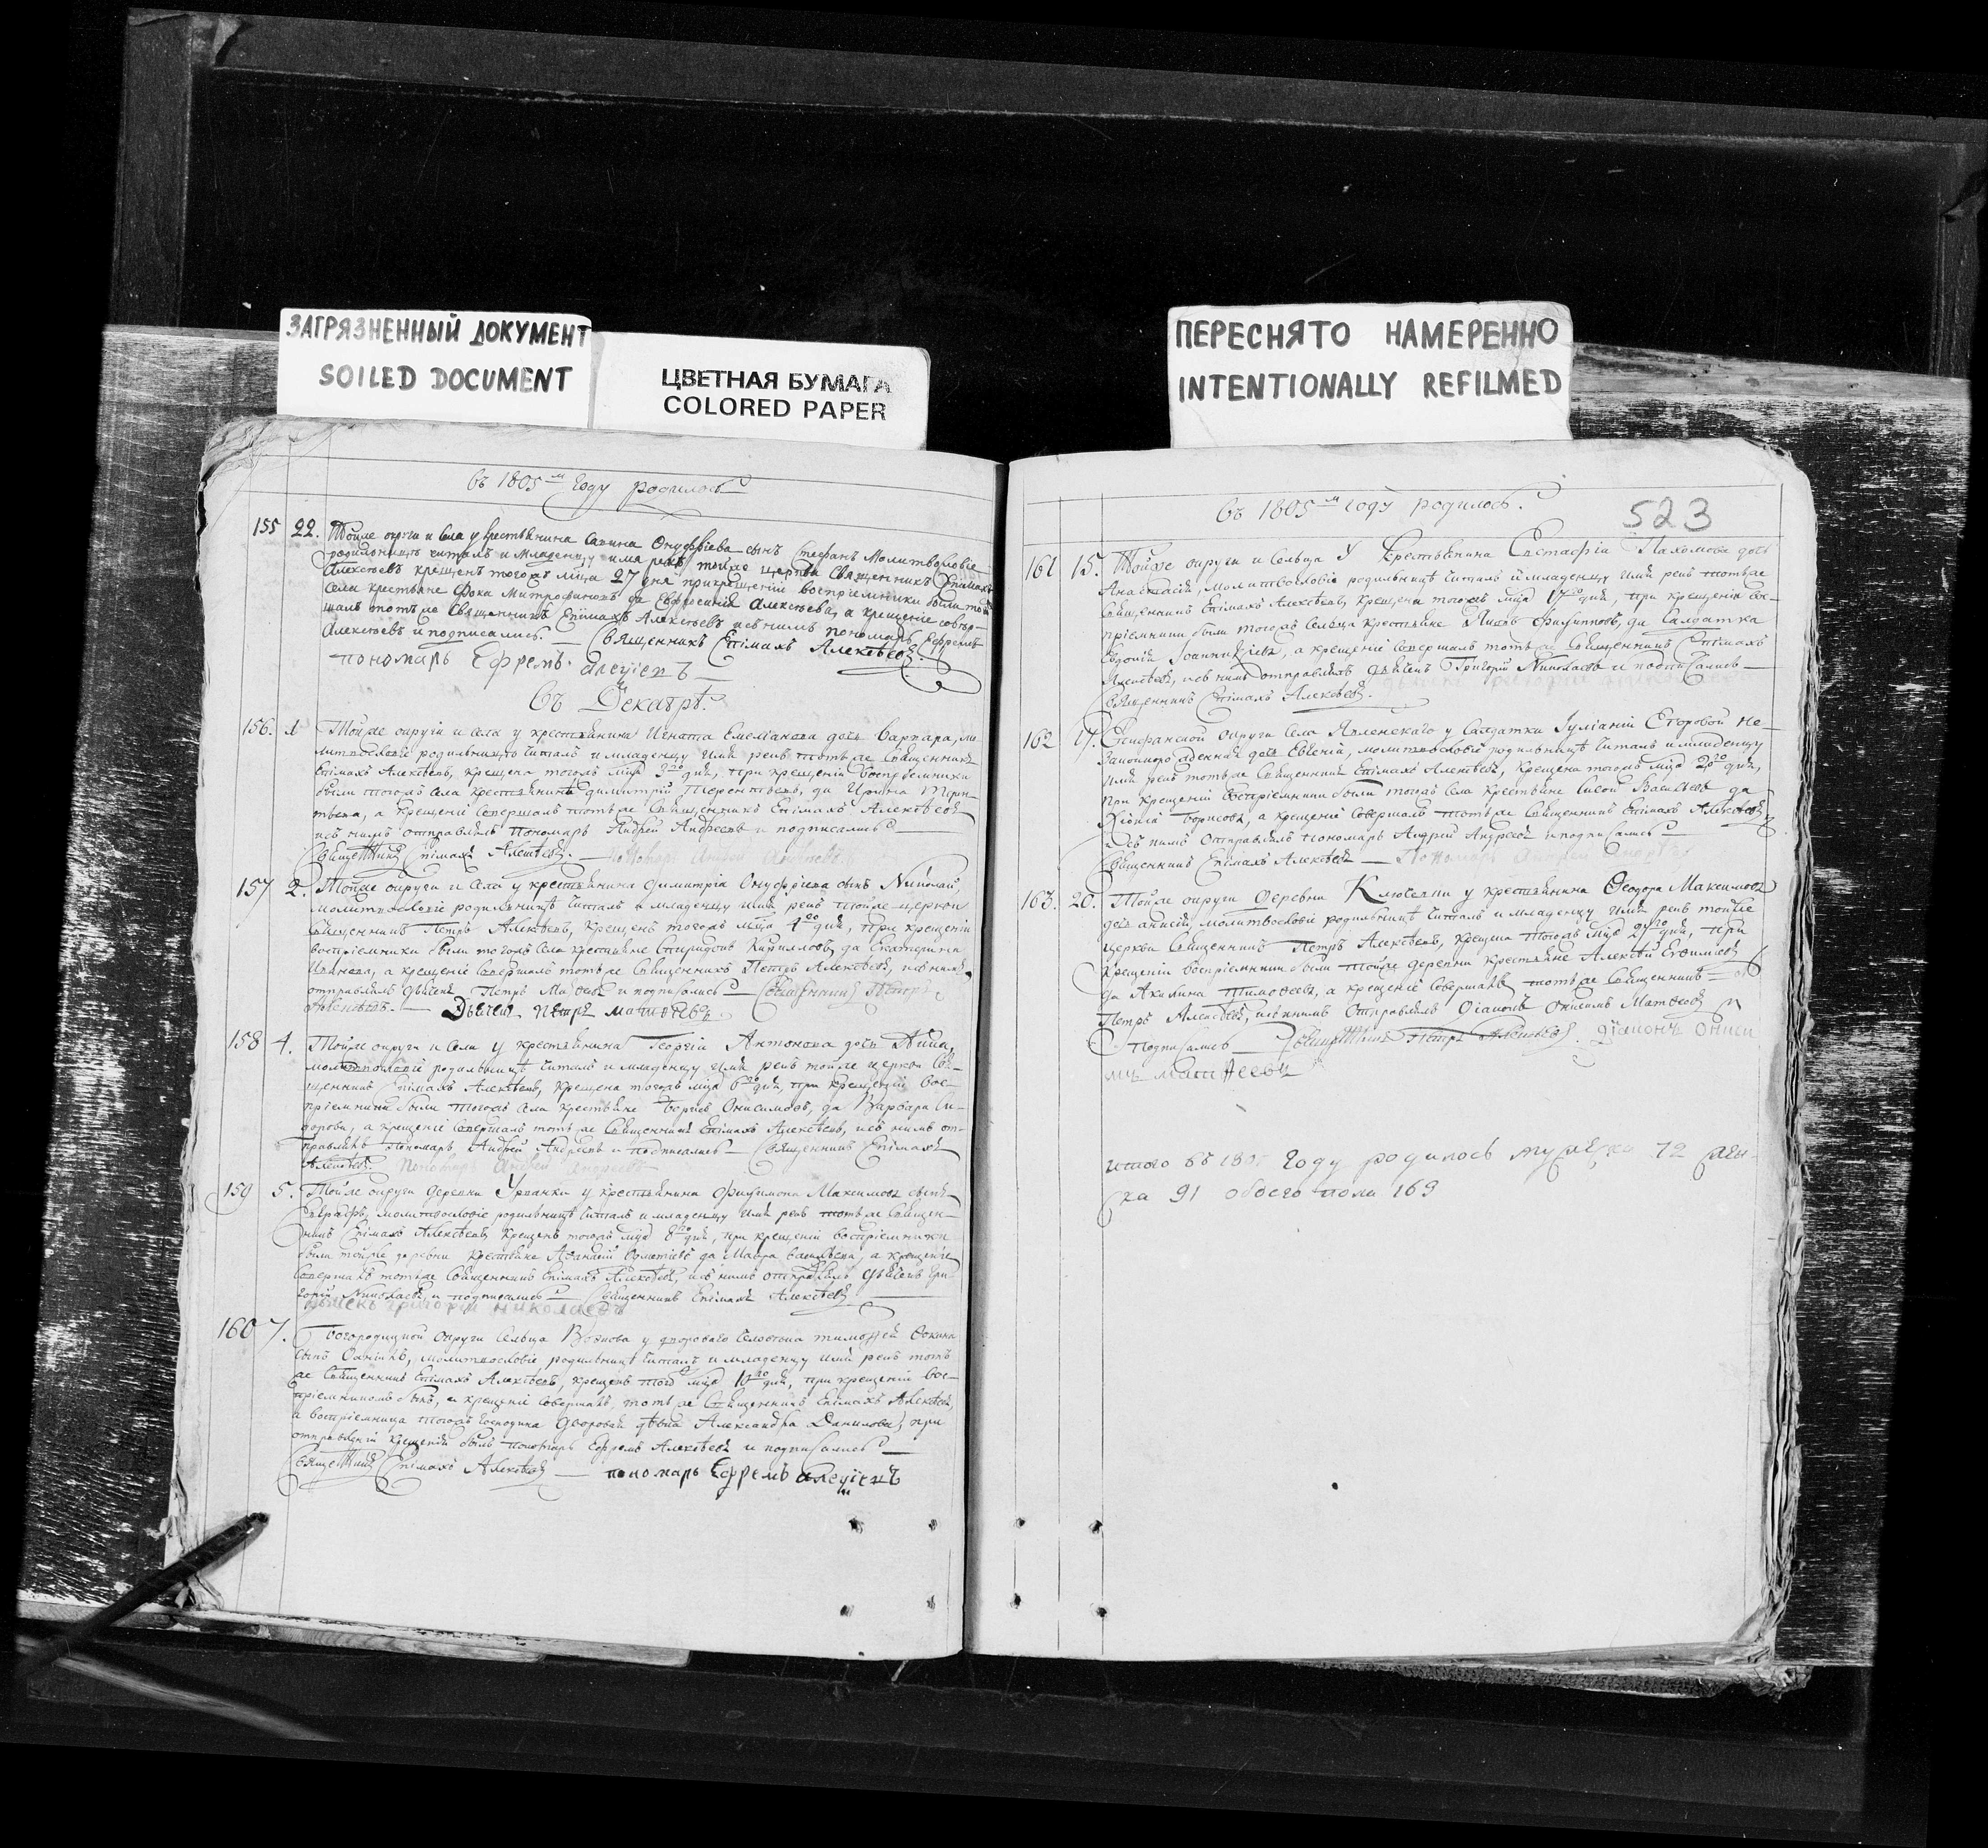 ЗАГРЯЗНЕННЫЙ ДОКУМЕНТ
SOILED DOCUMENT
ЦВЕТНАЯ БУМАГА
COLORED PAPER
ПЕРЕСНЯТО НАМЕРЕННО
INTENTIONALLY REFILMED
въ 1805м году родилось
155 22. Тойже округи и села у крестьянина Савина Онуфріева сынъ Стефанъ молитвословіе
родильницѣ читалъ и младенцу имя рекъ тойже церкви священникъ Епімахъ
Алексѣевъ крещенъ тогожъ мѣца 27 дня при крещеніи воспріемники были той
села крестьяне Фока Митрофановъ да Евфросинія Алексѣева, а крещеніе совер-
шалъ тотъ же священникъ Епімахъ Алексѣевъ и съ нимъ пономарь Ефремъ
Алексѣевъ и подписались. Священникъ Епімахъ Алексѣевъ
пономарь Ефремъ
въ Декабрѣ.
156. 1 Тойже округи и села у крестьянина Игната Емельянова дочь Варвара, мо-
литвословіе родильницѣ читалъ и младенцу имя рекъ тотъ же священникъ
Епімахъ Алексѣевъ, крещена тогожъ мѣца 3го дня, при крещеніи воспріемники
были тогожъ села крестьянинъ Димитрій Терентьевъ, да Ирина
а крещеніе совершалъ тотъ же священникъ Епімахъ Алексѣевъ
и съ нимъ отправлялъ пономарь Андрей Андреевъ и подписались
Священникъ Епімахъ Алексѣевъ. пономарь Андрей Андреевъ
157 2. Тойже округи и села у крестьянина Димитрія Онуфріева сынъ Николай,
молитвословіе родильницѣ читалъ и младенцу имя рекъ тойже церкви
священникъ Петръ Алексѣевъ, крещенъ тогожъ мѣца 4го дня, при крещеніи
воспріемники были тогожъ села крестьяне Спиридонъ Кирилловъ, да Екатерина
Иванова, а крещеніе совершалъ тотъ же священникъ Петръ Алексѣевъ, и съ нимъ
отправлялъ дьячекъ Петръ Матѳеевъ и подписались Священникъ Петръ
Алексѣевъ. Дьячекъ Петръ Матѳѣевъ
158 4. Тойже округи и села у крестьянина Георгія Антонова дочь Анна,
молитвословіе родильницѣ читалъ и младенцу имя рекъ тойже церкви свя-
щенникъ Епімахъ Алексѣевъ, крещена тогожъ мѣца 6го дня, при крещеніи вос-
пріемники были тогожъ села крестьяне Борисъ Онисимовъ, да Варвара Си-
дорова, а крещеніе совершалъ тотъ же священникъ Епімахъ Алексѣевъ, и съ нимъ от-
правлялъ пономарь Андрей Андреевъ и подписались Священникъ Епімахъ
Алексѣевъ. пономарь Андрей Андреевъ
159 5. Тойже округи деревни Урванки у крестьянина Филимона Максимова сынъ
молитвословіе родильницѣ читалъ и младенцу имя рекъ тотъ же священ-
никъ Епімахъ Алексѣевъ крещенъ тогожъ мѣца 8го дня, при крещеніи воспріемники
были тойже деревни крестьяне Афанасій да Мавра Васильева, а крещеніе
совершалъ тотъ же священникъ Епімахъ Алексѣевъ, и съ нимъ отправлялъ дьячекъ Гри-
горій Николаевъ, и подписались Священникъ Епімахъ Алексѣевъ
дьячекъ Григорій Николаевъ
160 7. Богородицкой округи сельца у двороваго человека Тимоѳея Фокина
сынъ Даніилъ, молитвословіе родильницѣ читалъ и младенцу имя рекъ тотъ
же священникъ Епімахъ Алексѣевъ, крещенъ тогожъ мѣца 10го дня, при крещеніи вос-
пріемникомъ былъ, и крещеніе совершалъ, тотъ же священникъ Епімахъ Алексѣевъ,
а воспріемница тогожъ господина дворовая дѣвка Александра Данилова, при
отправленіи крещенія былъ пономарь Ефремъ Алексѣевъ и подписались
Священникъ Епімахъ Алексѣевъ пономарь Ефремъ
въ 1805м году родилось.
523
161 15. Тойже округи и сельца у крестьянина Евстафія Пахомова дочь
Анастасія, молитвословіе родильницѣ читалъ и младенцу имя рекъ тотъ же
священникъ Епімахъ Алексѣевъ, крещена тогожъ мѣца 17го дня, при крещеніи вос-
пріемники были тогожъ сельца крестьяне Филипповъ, да салдатка
Евдокія а крещеніе совершалъ тотъ же священникъ Епімахъ
Алексѣевъ, и съ нимъ отправлялъ дьячекъ Григорій Николаевъ и подписались
Священникъ Епімахъ Алексѣевъ.
162 17. Епифанской округи села у салдатки Іуліаніи Егоровой не-
законнорожденная дочь Евгенія, молитвословіе родильницѣ читалъ и младенцу
имя рекъ тотъ же священникъ Епімахъ Алексѣевъ, крещена тогожъ мѣца 20го дня,
при крещеніи воспріемники были тогожъ села крестьяне Сисой Васильевъ да
Борисова, а крещеніе совершалъ тотъ же священникъ Епімахъ Алексѣевъ
и съ нимъ отправлялъ пономарь Андрей Андреевъ и подписались
Священникъ Епімахъ Алексѣевъ пономарь Андрей Андреевъ
163. 20. Тойже округи деревни у крестьянина Ѳеодора Максимова
дочь Анисія, молитвословіе родильницѣ читалъ и младенцу имя рекъ тойже
церкви священникъ Петръ Алексѣевъ, крещена тогожъ мѣца дня, при
крещеніи воспріемники были тойже деревни крестьяне Алексѣй Евфиміевъ
да Акилина Тимоѳеева, а крещеніе совершалъ тотъ же священникъ
Петръ Алексѣевъ, и съ нимъ отправлялъ діаконъ Онисимъ Матѳеевъ и
подписались Священникъ Петръ Алексѣевъ. діаконъ Ониси
мъ Матѳеевъ
итого въ 1805 году родилось мужеска 72 жен-
ска 91 обоего пола 169